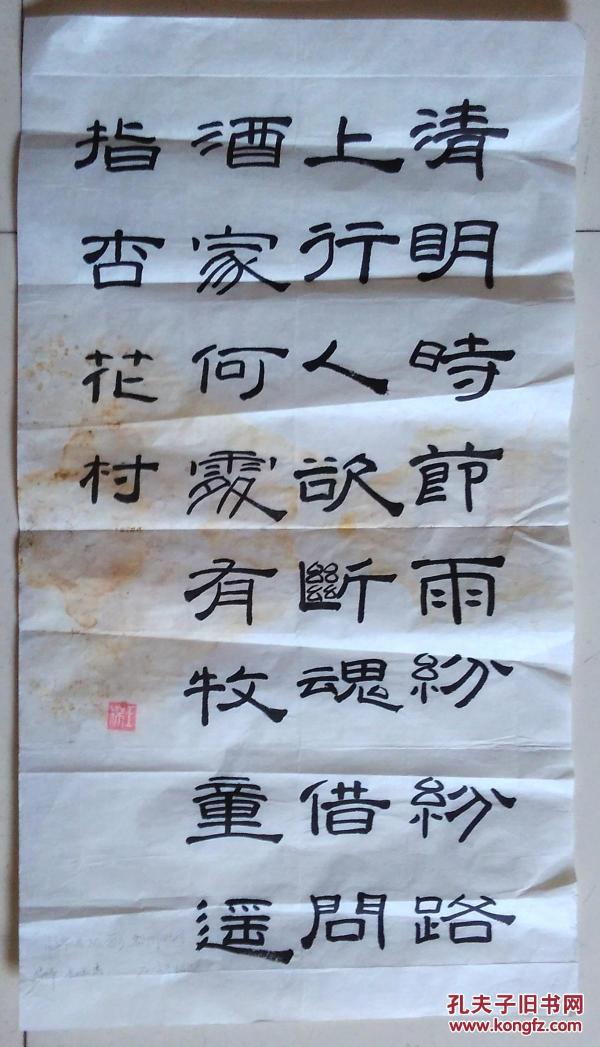 清明時節雨紛紛路
上行人欲斷魂借問
酒家何處有牧童遥
指杏花村
孔夫子旧书网
www.kongfz.com